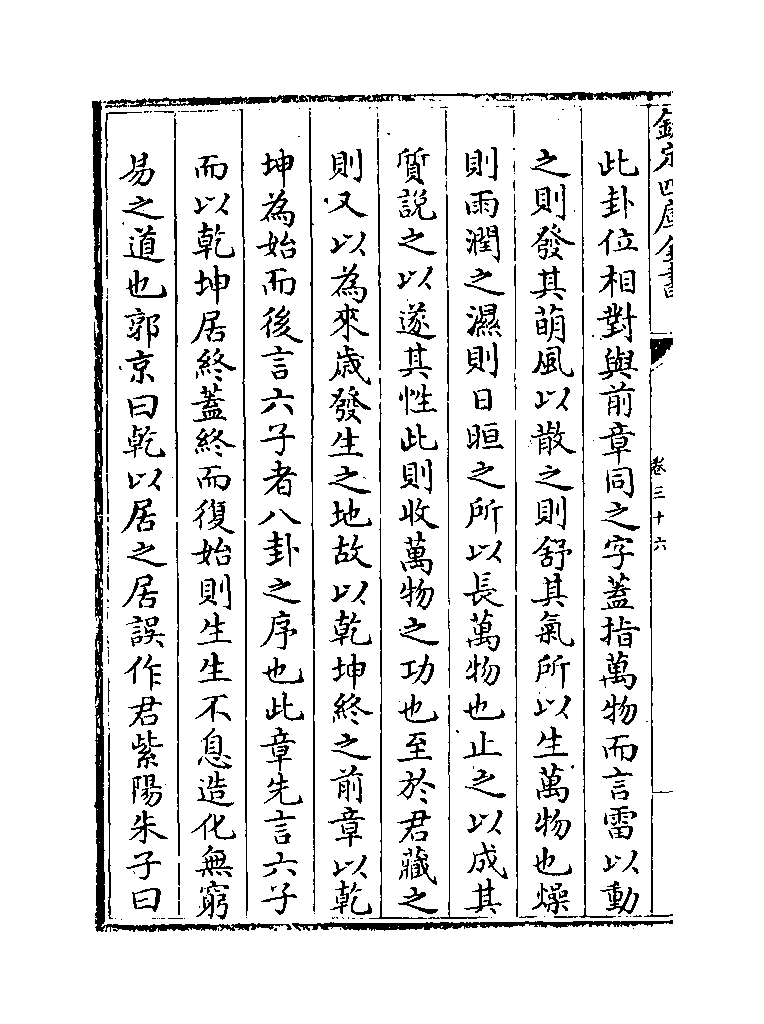 欽定四庫全書
卷三十六
此卦位相對與前章同之字蓋指萬物而言雷以動
之則發其萌風以散之則舒其氣所以生萬物也燥
則雨潤之濕則日晅之所以長萬物也止之以成其
質説之以遂其性此則收萬物之功也至於君藏之
則又以為來歲發生之地故以乾坤終之前章以乾
坤為始而後言六子者八卦之序也此章先言六子
而以乾坤居終蓋終而復始則生生不息造化無窮
易之道也郭京曰乾以居之居誤作君紫陽朱子曰